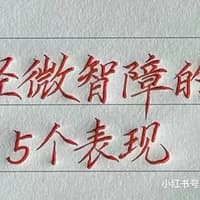 微智障的
5个表现
小红书号